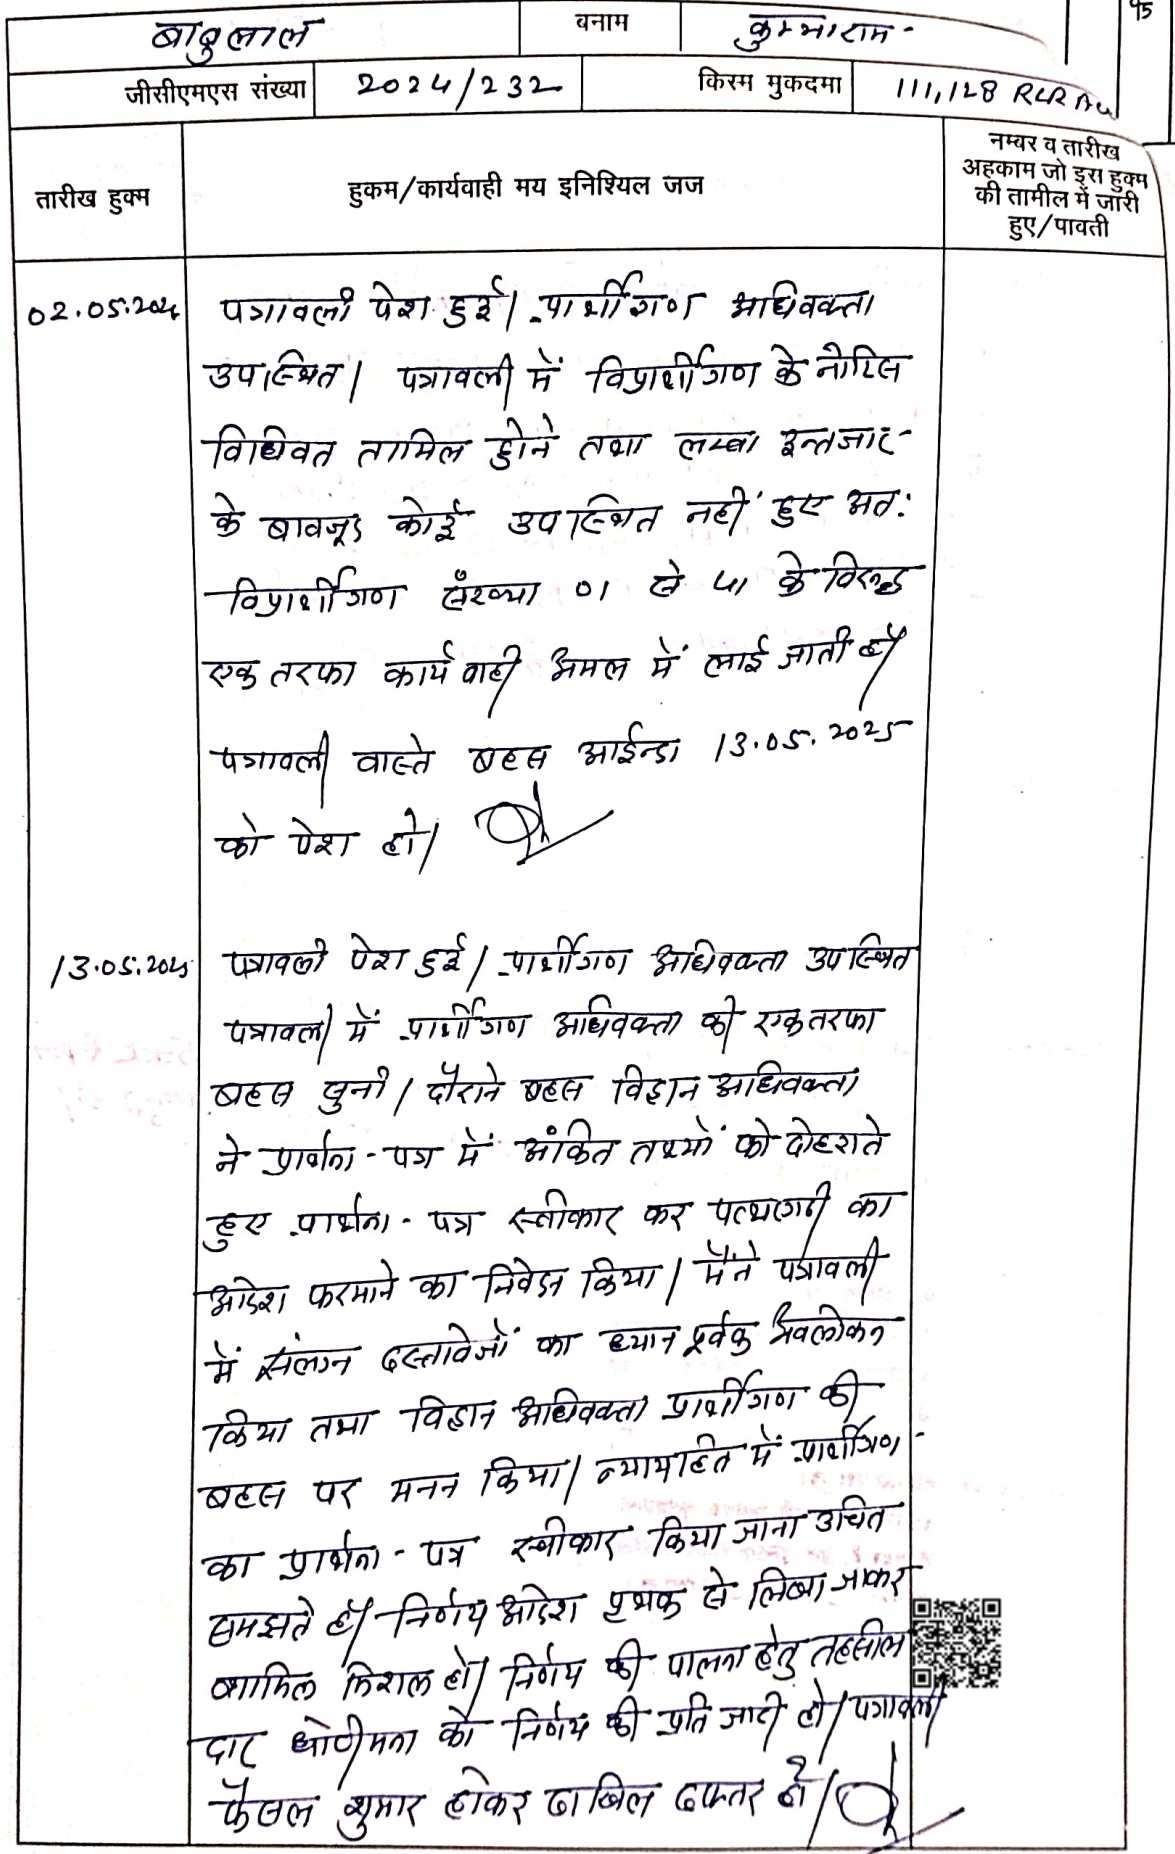 95
बाबुलाल बनाम कुम्भाराम
जीसीएमएस संख्या 2024/232 किस्म मुकदमा 111,128 RLR Act
तारीख हुक्म
हुकम/कार्यवाही मय इनिश्यिल जज
नम्बर व तारीख
अहकाम जो इस हुक्म
की तामील में जारी
हुए/पावती
02.05.2025 पत्रावली पेश हुई। प्रार्थीगण अधिवक्ता
उपस्थित। पत्रावली में विप्रार्थीगण के नोटिस
विधिवत तामिल होने तथा लम्बा इन्तजार
के बावजूद कोई उपस्थित नहीं हुए अत:
विप्रार्थीगण संख्या 01 से 41 के विरूद्ध
एकतरफा कार्यवाही अमल में लाई जाती है।
पत्रावली वास्ते बहस आईन्दा 13.05.2025
को पेश हो।
13.05.2025 पत्रावली पेश हुई। प्रार्थीगण अधिवक्ता उपस्थित
पत्रावली में प्रार्थीगण अधिवक्ता की एकतरफा
बहस सुनी। दौराने बहस विद्वान अधिवक्ता
ने प्रार्थना-पत्र में अंकित तथ्यों को दोहराते
हुए प्रार्थना-पत्र स्वीकार कर पत्थरगढी का
आदेश फरमाने का निवेदन किया। मैंने पत्रावली
में संलग्न दस्तावेजों का ध्यान पूर्वक अवलोकन
किया तथा विद्वान अधिवक्ता प्रार्थीगण की
बहस पर मनन किया। न्यायहित में प्रार्थीगण
का प्रार्थना-पत्र स्वीकार किया जाना उचित
समझते है। निर्णय आदेश पृथक से लिखा जाकर
शामिल मिशल हो। निर्णय की पालना हेतु तहसील
दार धोरीमना को निर्णय की प्रति जारी हो। पत्रावली
फैसल शुमार होकर दाखिल दफ्तर हो।